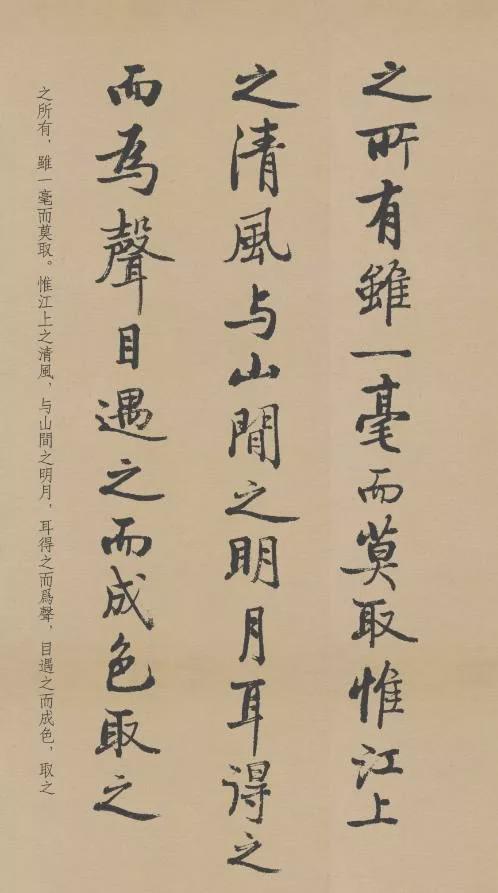 之所有雖一毫而莫取惟江上
之清風与山間之明月耳得之
而為聲目遇之而成色取之
之所有，雖一毫而莫取。惟江上之清風，与山間之明月，耳得之而爲聲，目遇之而成色，取之